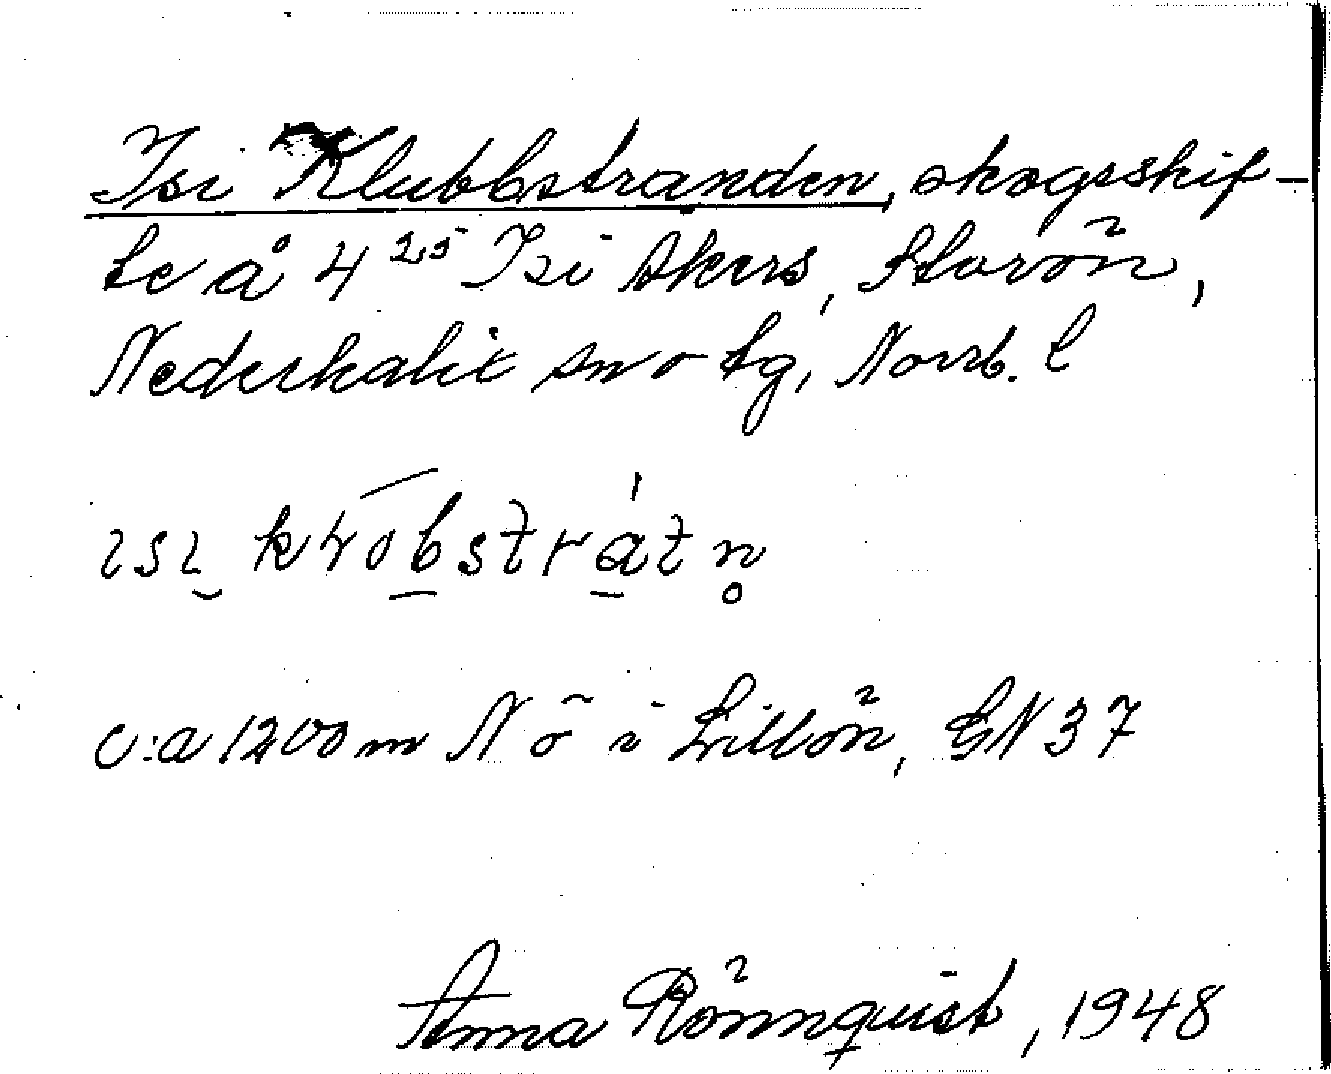 Isi Klubbstranden, skogsskif-
te å 4²⁵ Isi Akers, Storön,
Nederkalix sn o tg, Norrb. l
ca 1200 m NÖ i Lillön, GN 37
Anna Rönnquist, 1948